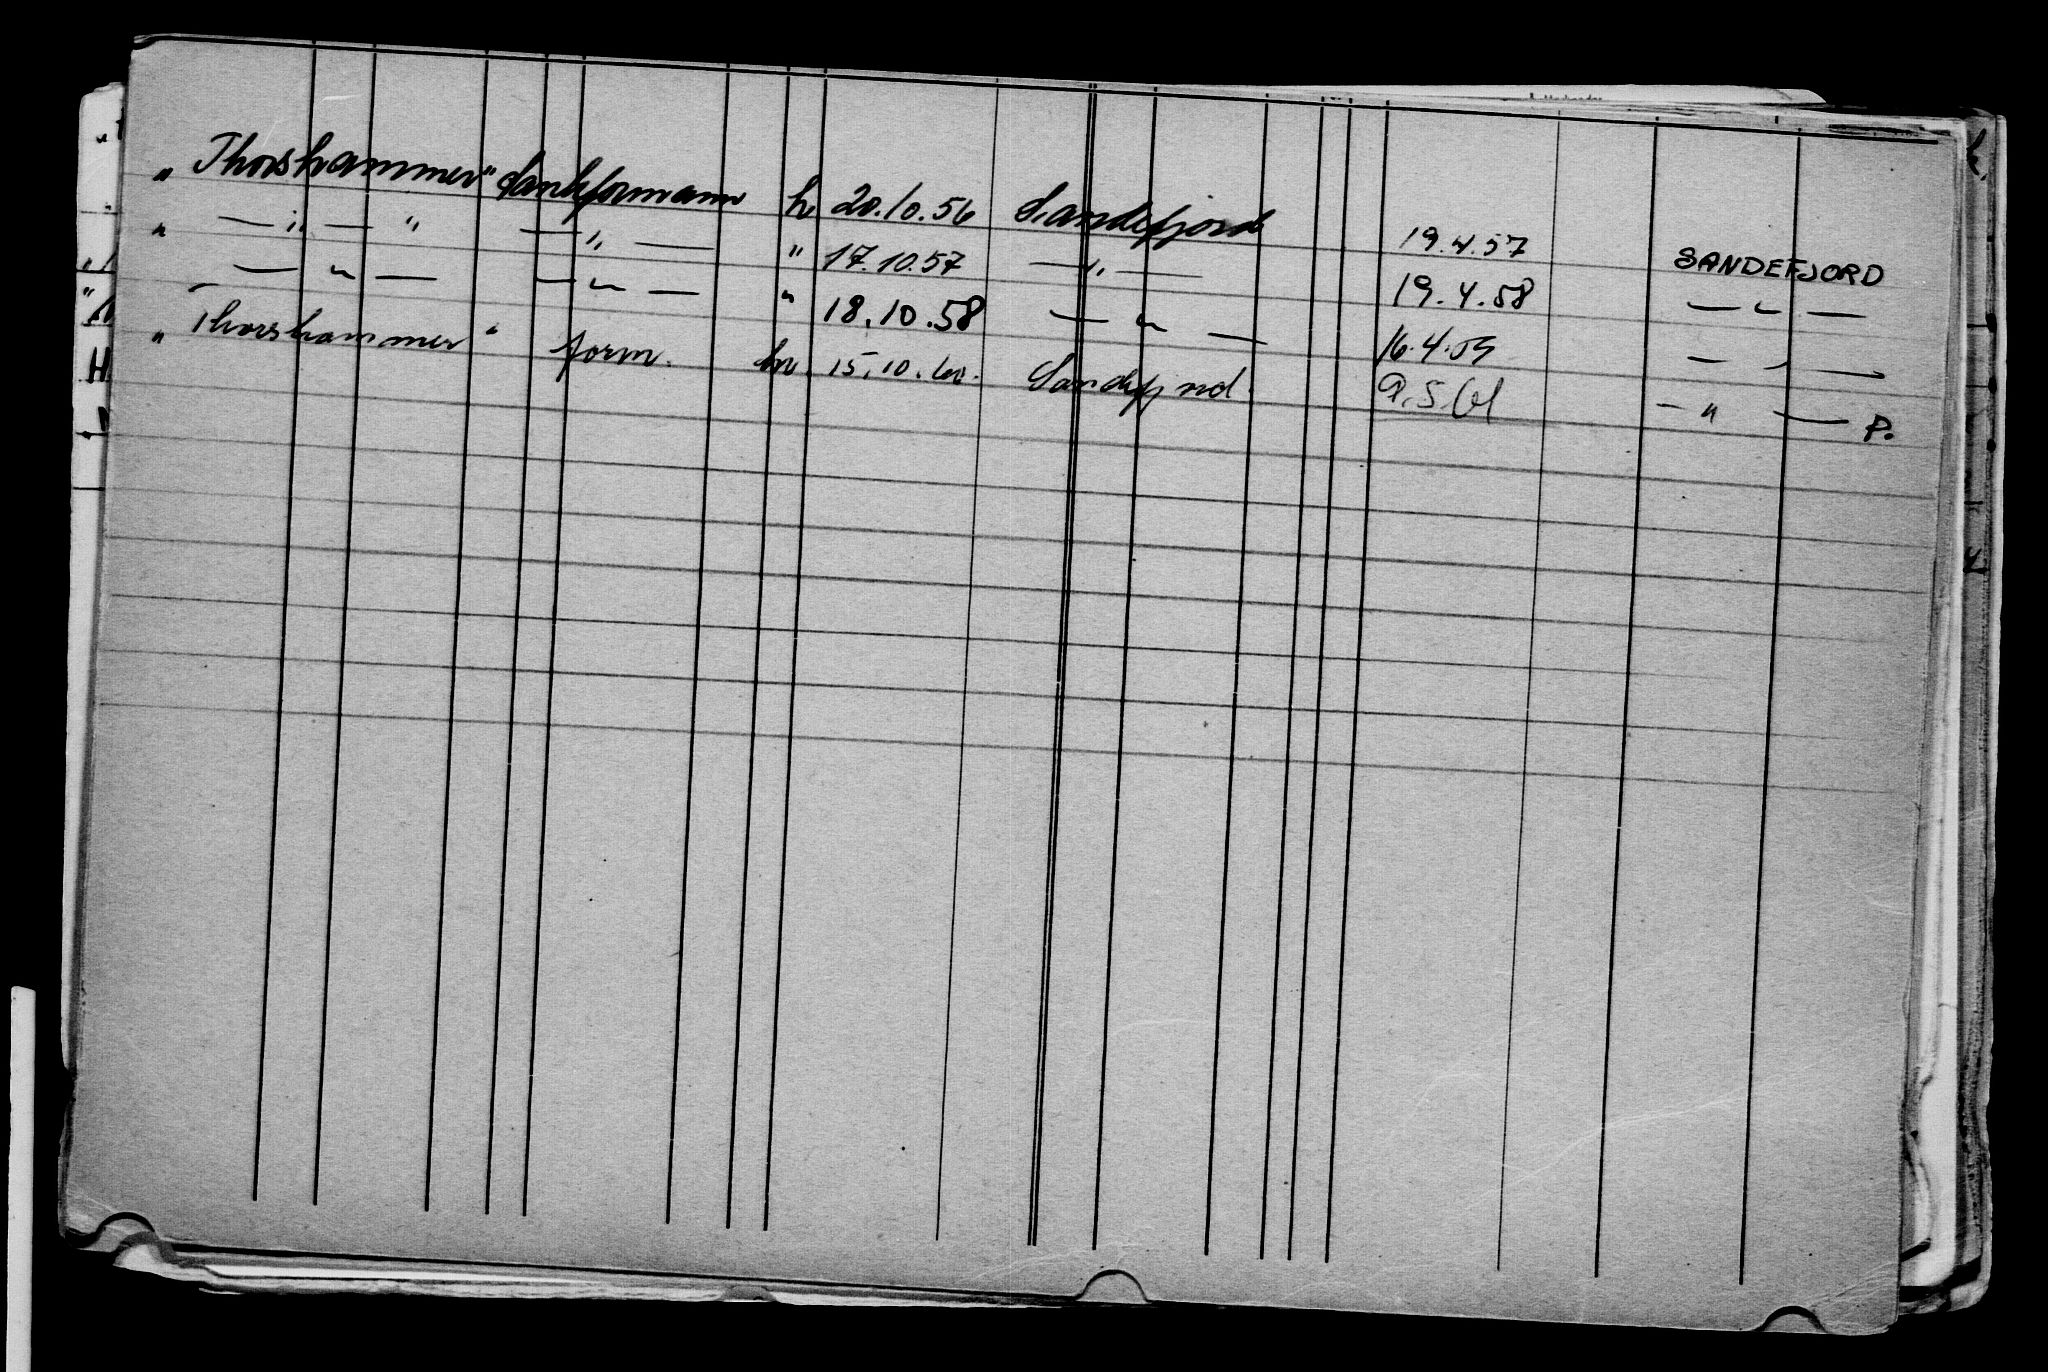 „ Thorshammer" Tankformann h. 20.10.56 Sandefjord 19.4.57 SANDEFJORD
" — „ — „ — „ — " 17.10.57 — „ — 19.4.58 — " —
— " — — " — " 18.10.58 — " — 16.4.59 — „ —
„ Thorshammer " form. hv. 15.10.60. Sandefjord. 9.5.61 — " — P.